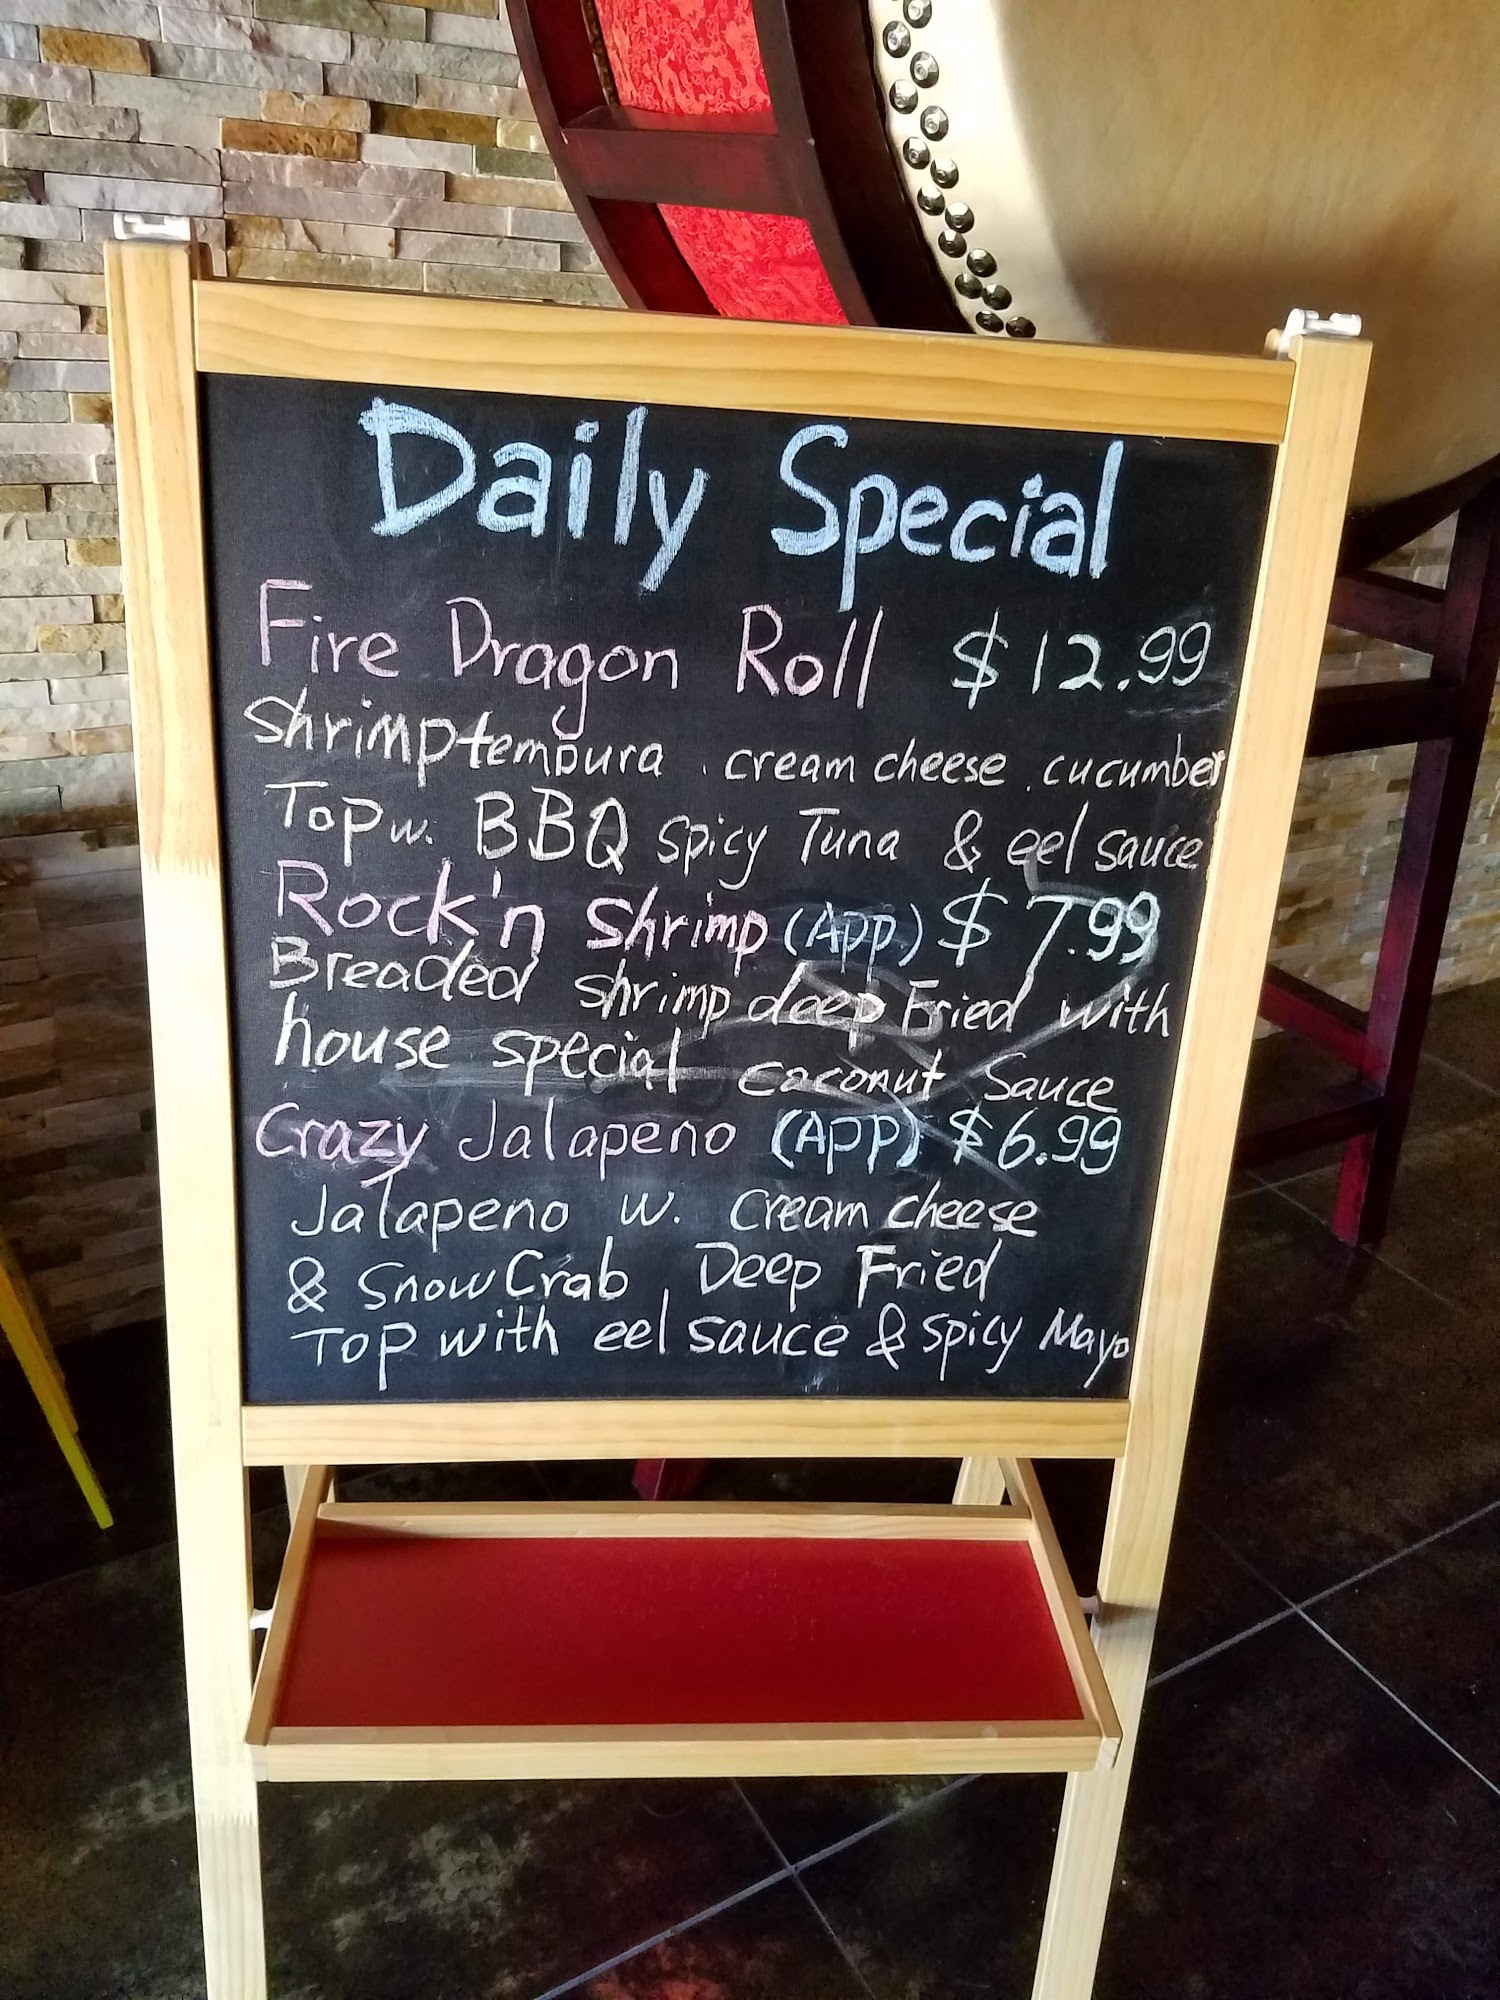 Daily Special
Fire Dragon Roll $12.99
Shrimp tempura . cream cheese . cucumber
Top w. BBQ spicy Tuna & eel sauce
Rock'n Shrimp (App) $7.99
Breaded shrimp deep Fried with
house special coconut Sauce
Crazy Jalapeno (App) $6.99
Jalapeno w. cream cheese
& Snow Crab , Deep Fried
Top with eel sauce & spicy Mayo